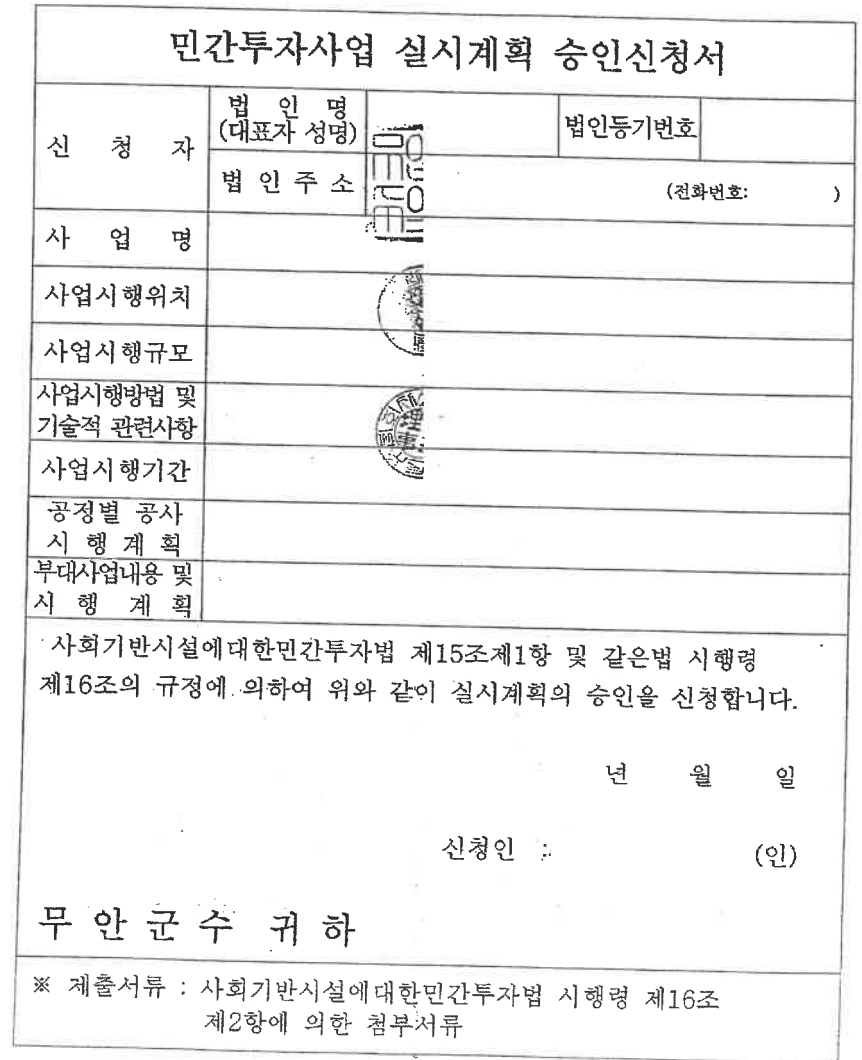 민간투자사업 실시계획 승인신청서
신 청 자
법 인 명
(대표자 성명)
법인등기번호
법 인 주 소
(전화번호: )
사 업 명
사업시행위치
사업시행규모
사업시행방법 및
기술적 관련사항
사업시행기간
공정별 공사
시 행 계 획
부대사업내용 및
시 행 계 획
사회기반시설에대한민간투자법 제15조제1항 및 같은법 시행령
제16조의 규정에 의하여 위와 같이 실시계획의 승인을 신청합니다.
년 월 일
신청인 : (인)
무 안 군 수 귀 하
※ 제출서류 : 사회기반시설에대한민간투자법 시행령 제16조
제2항에 의한 첨부서류